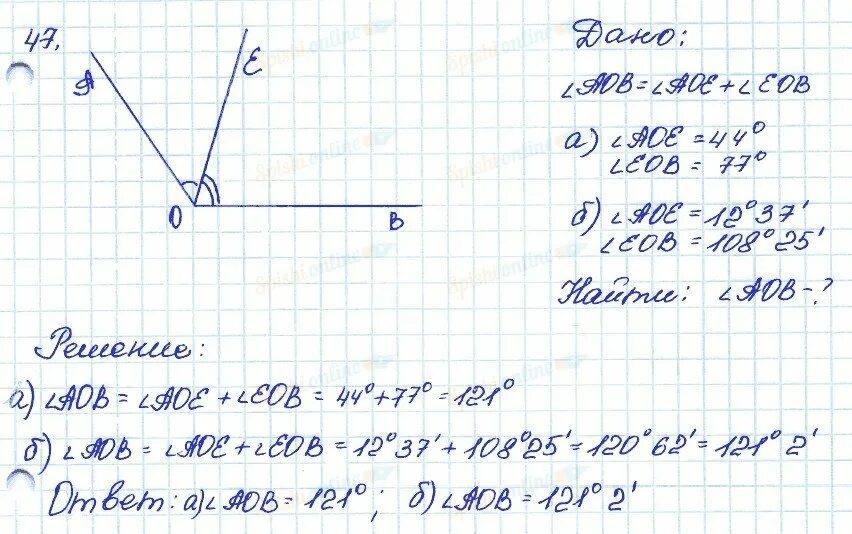 47.
A
E
O
B
Дано:
∠AOB = ∠AOE + ∠EOB
а) ∠AOE = 44°
∠EOB = 77°
б) ∠AOE = 12° 37'
∠EOB = 108° 25'
Найти: ∠AOB - ?
Решение:
а) ∠AOB = ∠AOE + ∠EOB = 44° + 77° = 121°
б) ∠AOB = ∠AOE + ∠EOB = 12° 37' + 108° 25' = 120° 62' = 121° 2'
Ответ: а) ∠AOB = 121°; б) ∠AOB = 121° 2'
Spishi.online